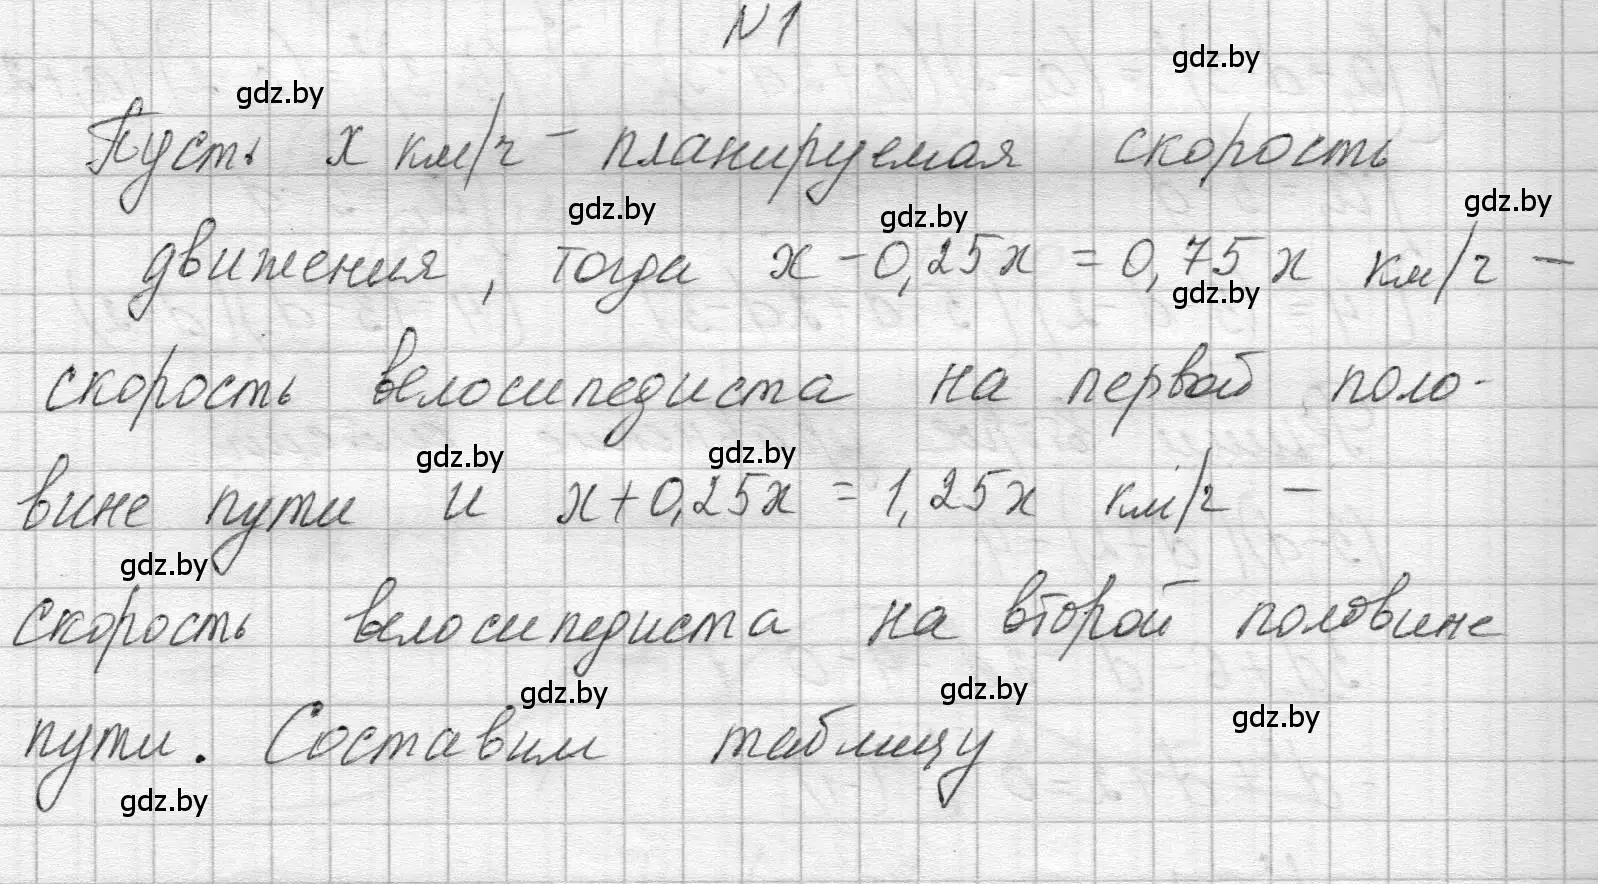 N 1
gdz.by
gdz.by
Пусть х км/ч - планируемая скорость
gdz.by gdz.by gdz.by
движения, тогда х - 0,25х = 0,75х км/ч -
gdz.by
скорость велосипедиста на первой поло-
gdz.by gdz.by
вине пути и х + 0,25х = 1,25х км/ч -
gdz.by
скорость велосипедиста на второй половине
gdz.by gdz.by gdz.by
пути. Составим таблицу
gdz.by